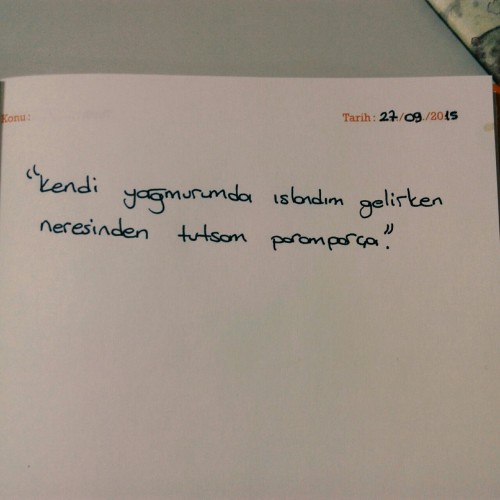 Konu:
Tarih: 27/09/2015
"Kendi yağmurumda ıslandım gelirken
neresinden tutsam paramparça."